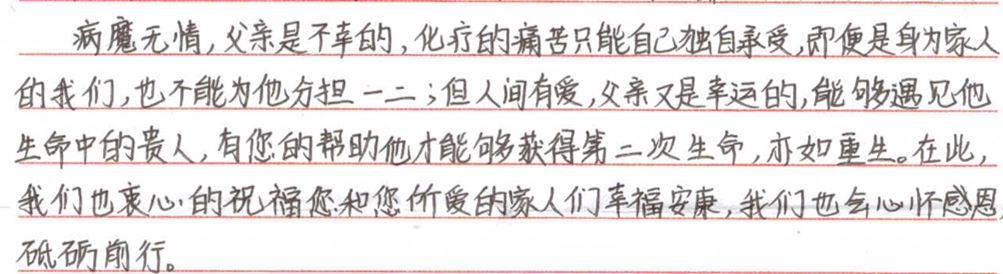 病魔无情，父亲是不幸的，化疗的痛苦只能自己独自承受，即便是身为家人
的我们，也不能为他分担一二；但人间有爱，父亲又是幸运的，能够遇见他
生命中的贵人，有您的帮助他才能够获得第二次生命，亦如重生。在此，
我们也衷心的祝福您和您所爱的家人们幸福安康，我们也会心怀感恩，
砥砺前行。